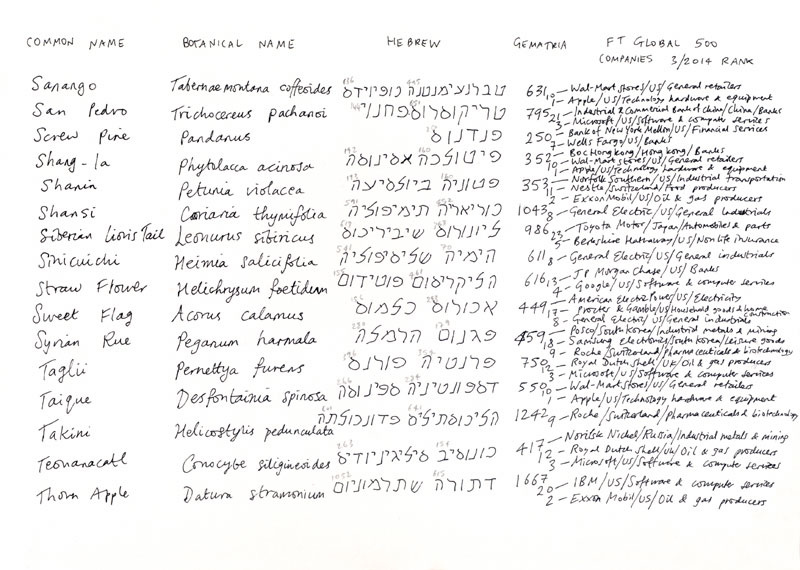 COMMON NAME BOTANICAL NAME HEBREW GEMATRIA FT GLOBAL 500
COMPANIES 3/2014 RANK
Sanango Tabernaemontana coffeoides טברנעימנטנה כופיוידס 631
10 – Wal-Mart Stores/US/General retailers
1 – Apple/US/Technology hardware & equipment
San Pedro Trichocereus pachanoi טריקוסרוס פחנוי 795
21 – Industrial & Commercial Bank of China/China/Banks
3 – Microsoft/US/Software & computer services
Screw Pine Pandanus פנדנוס 250
Bank of New York Mellon/US/Financial services
7 – Wells Fargo/US/Banks
Shang-la Phytolaca acinosa פיטולכה אסינוסה 352
Boc Hong Kong/Hong Kong/Banks
10 – Wal-Mart Stores/US/General retailers
1 – Apple/US/Technology hardware & equipment
Shanin Petunia violacea פטוניה ביולסיעה 353
Norfolk Southern/US/Industrial transportation
11 – Nestle/Switzerland/Food producers
2 – Exxon Mobil/US/Oil & gas producers
Shansi Coriaria thymifolia כוריאריה תימיפוליה 1043
8 – General Electric/US/General Industrials
Siberian Lion's Tail Leonurus sibiricus ליונורוס שיביריכוס 986
23 – Toyota Motor/Japan/Automobiles & parts
5 – Berkshire Hathaway/US/Nonlife insurance
Sinicuichi Heimia salicifolia הימיה שליסיפוליה 611
8 – General Electric/US/General industrials
Straw Flower Helichrysum foetidum הליקריסום פוטידום 616
13 – JP Morgan Chase/US/Banks
4 – Google/US/Software & computer services
Sweet Flag Acorus calamus אכורוס כלמוס 449
American Electric Power/US/Electricity
17 – Procter & Gamble/US/Household goods & home construction
8 – General Electric/US/General industrials
Syrian Rue Peganum harmala פגנום הרמלה 459
Posco/South Korea/Industrial metals & mining
18 – Samsung Electronics/South Korea/Leisure goods
9 – Roche/Switzerland/Pharmaceuticals & biotechnology
Taglii Pernettya furens פרנטיה פורנס 750
2 – Royal Dutch Shell/UK/Oil & gas producers
3 – Microsoft/US/Software & computer services
Taique Desfontainia spinosa דספונטיניה ספינוסה 550
10 – Wal-Mart Stores/US/General retailers
1 – Apple/US/Technology hardware & equipment
Takini Helicostylis pedunculata הליכוסתיליס פדונכולתה 1242
9 – Roche/Switzerland/pharmaceuticals & biotechnology
Teonanacatl Conocybe siligineoides כונוסיב סיליגיניוידיס 417
Norilsk Nickel/Russia/Industrial metals & mining
12 – Royal Dutch Shell/UK/Oil & gas producers
3 – Microsoft/US/Software & computer services
Thorn Apple Datura stramonium דתורה שתרמוניום 1667
20 – IBM/US/Software & computer services
2 – Exxon Mobil/US/Oil & gas producers